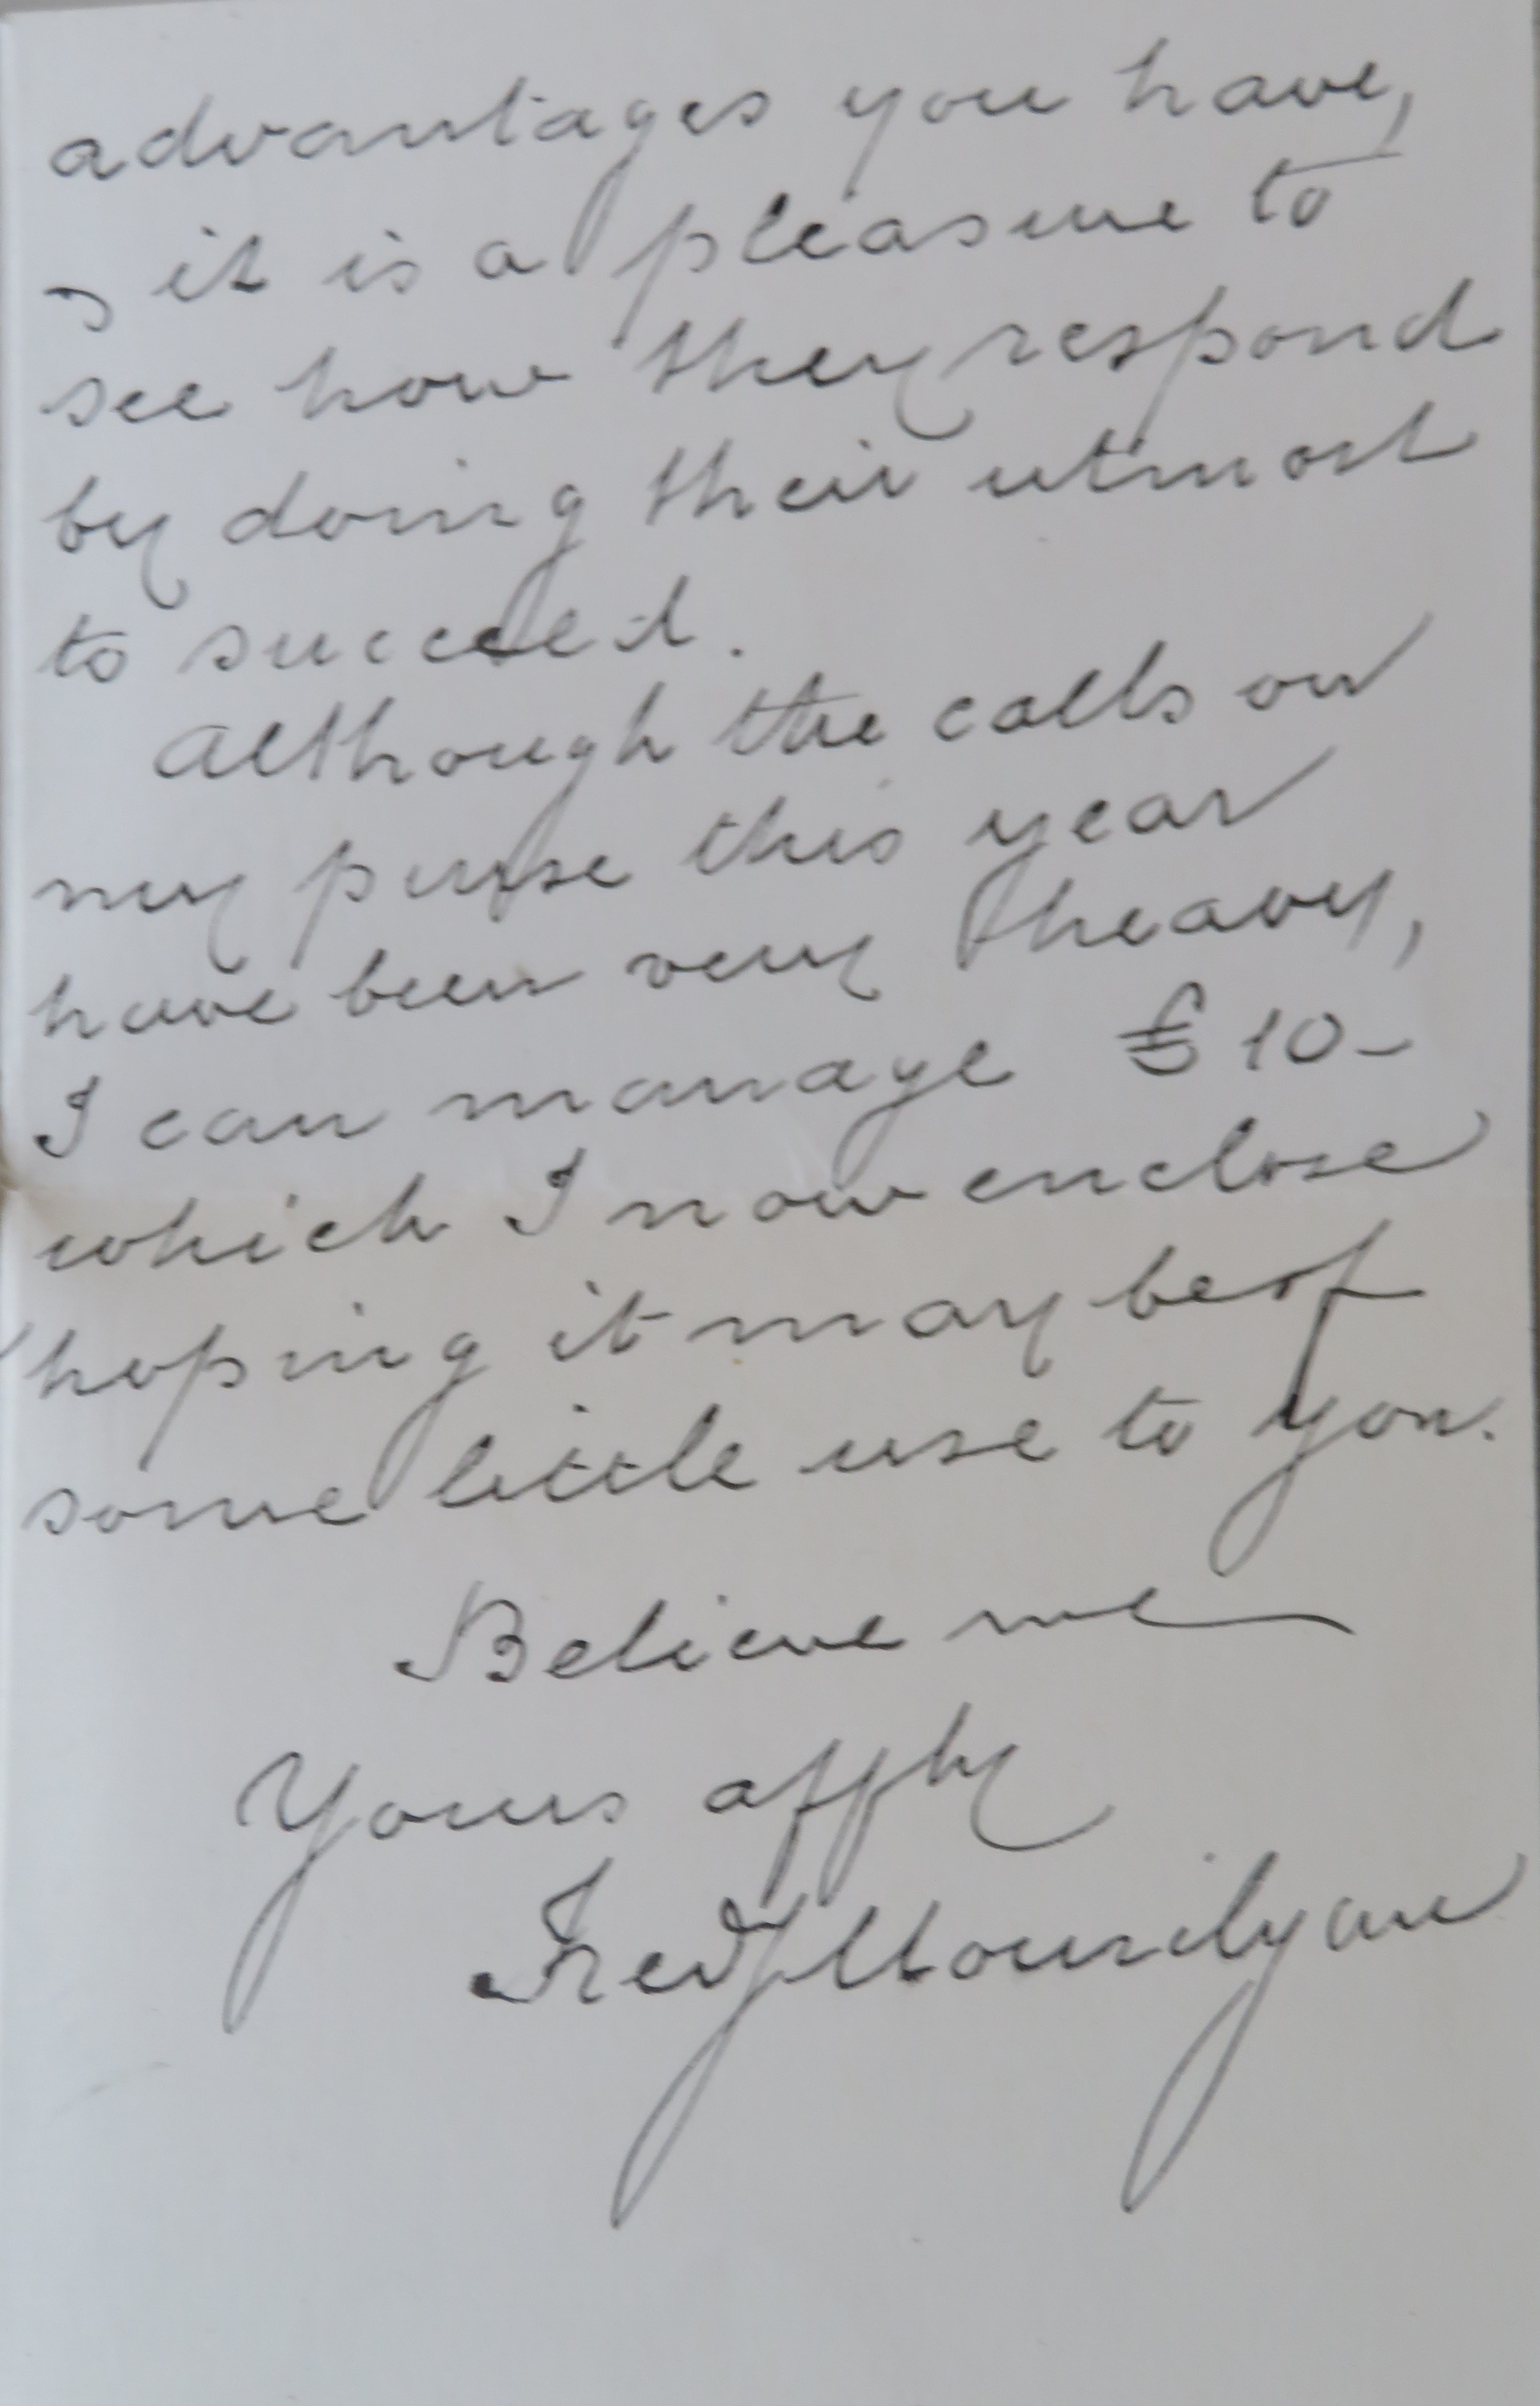 advantages you have,
& it is a pleasure to
see how they respond
by doing their utmost
to succeed.
Although the calls on
my purse this year
have been very heavy,
I can manage £10-
which I now enclose
hoping it may be of
some little use to you.
Believe me
Yours affly
Fred Mourilyan